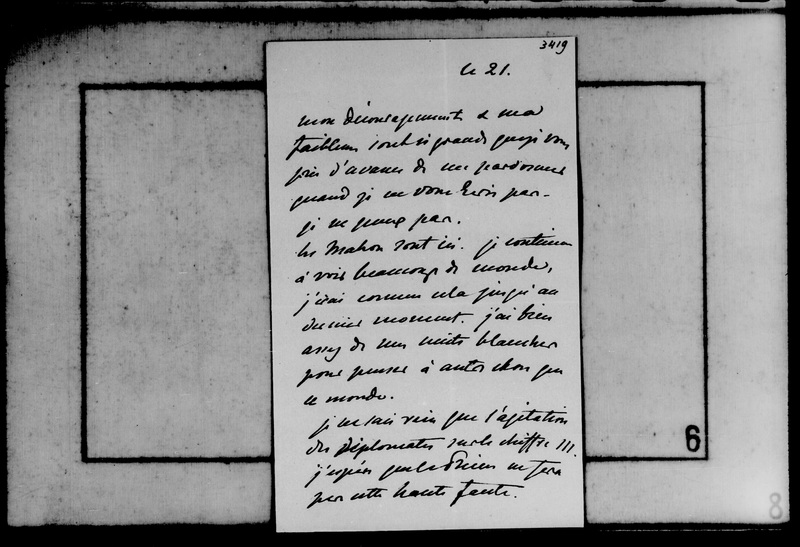 3419
le 21.
mon découragement & ma
faiblesse sont si grands que je vous
prie d'avance de me pardonner
quand je ne vous écris pas.
je ne peux pas.
les Mahon sont ici. je continue
à voir beaucoup de monde,
j'irai comme cela jusqu'au
dernier moment. j'ai bien
assez de mes nuits blanches
pour penser à autre chose que
ce monde.
je ne sais rien que l'agitation
des diplomates sur le chiffre III.
j'espère que le Prince ne fera
pas cette haute faute.
6
8